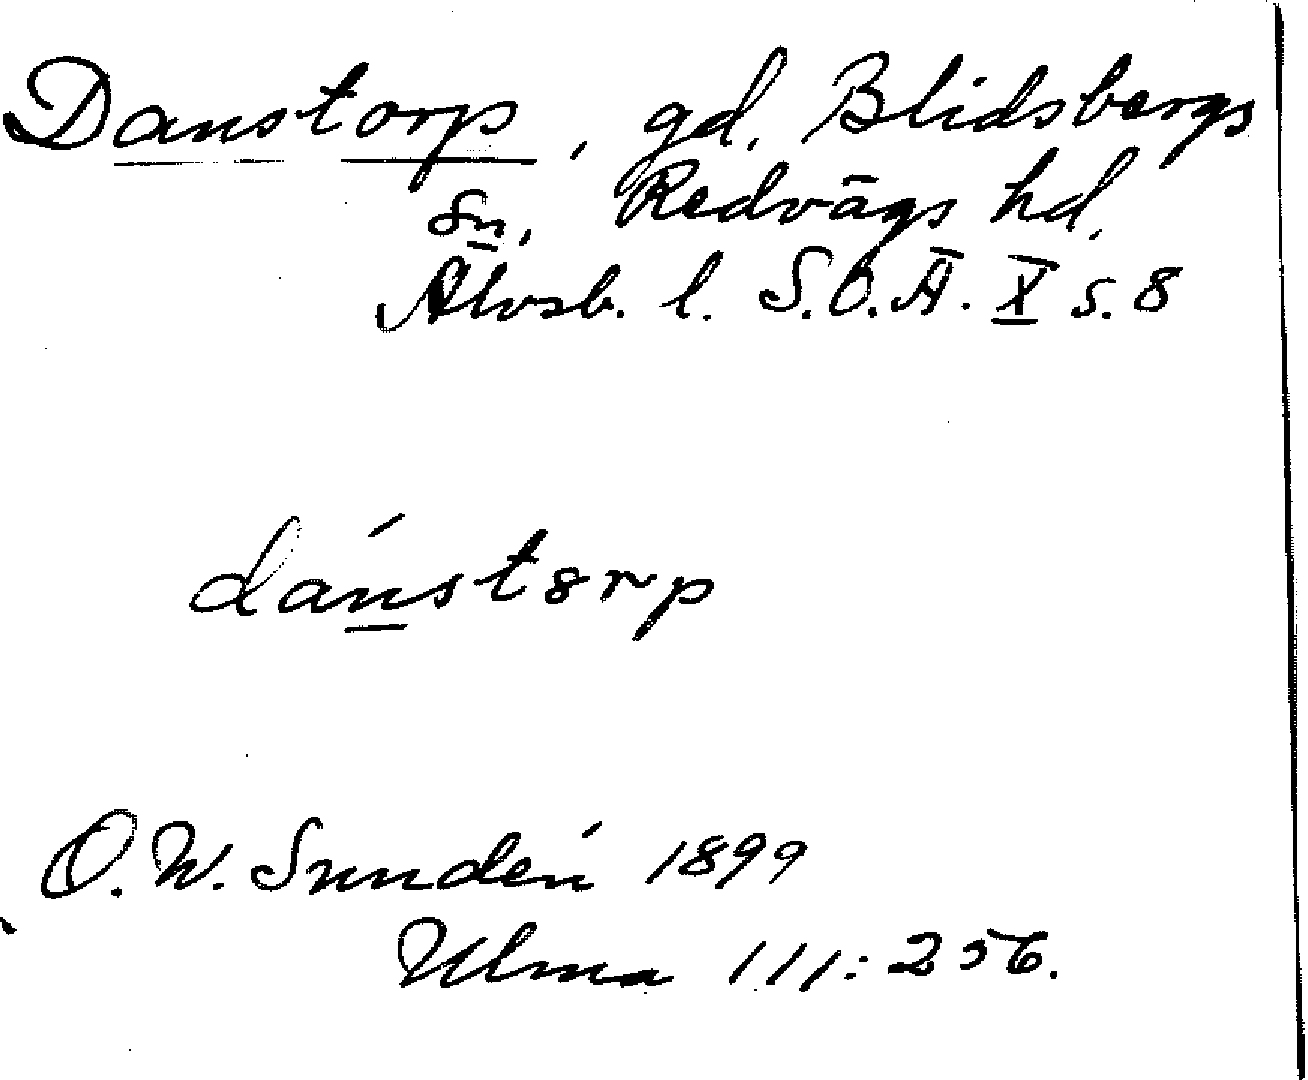 Danstorp, gd. Blidsbergs
sn, Redvägs hd.
Älvsb. l. S.O.Ä. X s. 8
dánst8rp
O. W. Sundén 1899
Ulma 111:256.